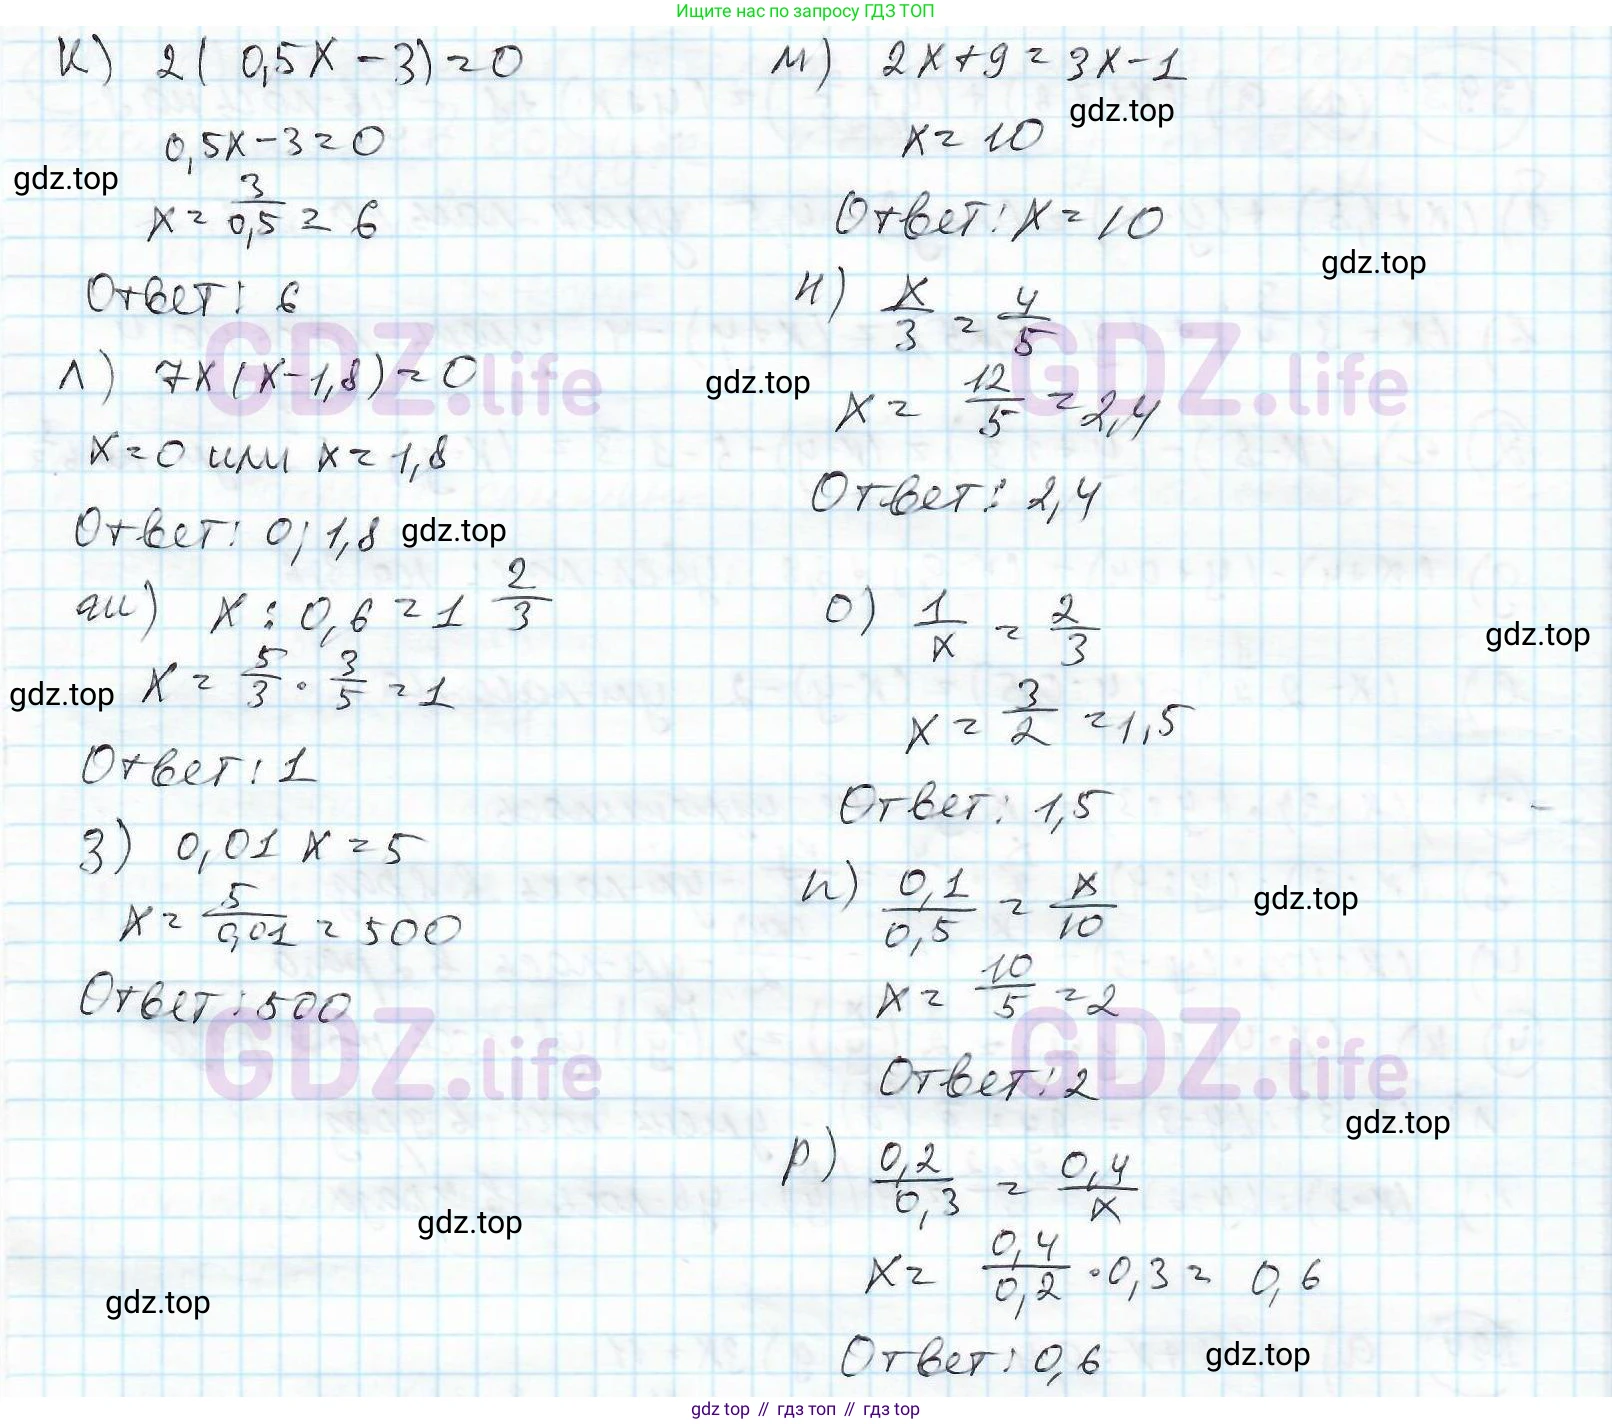 Ищите нас по запросу ГДЗ ТОП
к) 2(0,5x - 3) = 0
0,5x - 3 = 0
gdz.top
x = 3/0,5 = 6
Ответ: 6
л) 7x(x - 1,8) = 0
GDZ.life
x = 0 или x = 1,8
Ответ: 0; 1,8
gdz.top
x : 0,6 = 1 2/3
x = 5/3 · 3/5 = 1
gdz.top
Ответ: 1
з) 0,01x = 5
x = 5/0,01 = 500
Ответ: 500
GDZ.life
gdz.top
gdz.top
м) 2x + 9 = 3x - 1
gdz.top
x = 10
Ответ: x = 10
gdz.top
н) x/3 = 4/5
gdz.top
x = 12/5 = 2,4
GDZ.life
Ответ: 2,4
о) 1/x = 2/3
gdz.top
x = 3/2 = 1,5
Ответ: 1,5
п) 0,1/0,5 = x/10
gdz.top
x = 10/5 = 2
GDZ.life
Ответ: 2
gdz.top
р) 0,2/0,3 = 0,4/x
x = 0,4/0,2 · 0,3 = 0,6
Ответ: 0,6
gdz.top
gdz top // гдз топ // gdz top